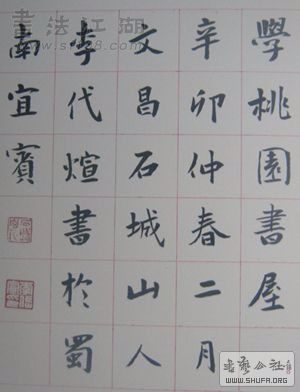 學桃園書屋
辛卯仲春二月
文昌石城山人
李代煊書於蜀
南宜賓
書法江湖
SF108.COM
书艺公社
WWW.SHUFA.ORG